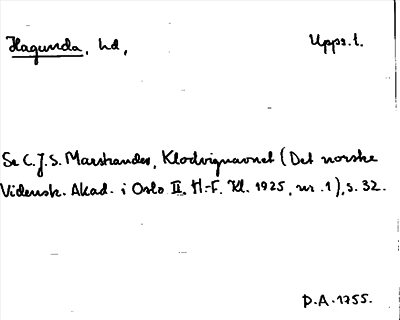 Hagunda, hd, Upps. l.
Se C. J. S. Marstrander, Klodvignavnet (Det norske
Vidensk. Akad. i Oslo II. H.-F. Kl. 1925, nr. 1), s. 32.
D.A. 1755.